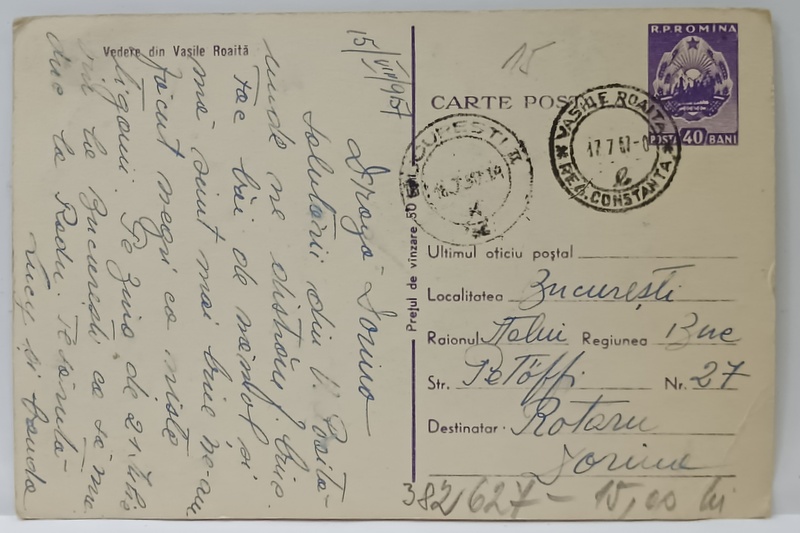 Vedere din Vasile Roaită
15/VII/957
Dragă Dorina
Salutări din V. Roaită
unde ne distrăm bine.
Fac băi de nămol și
mă simt mai bine ne-am
făcut negri ca niște
țigani. Pe ziua de 21
vin la București ca să mă
duc la Radu. Te sărută
Lucy și
15
CARTE POȘTALĂ
R.P.ROMINA
POSTA 40 BANI
VASILE ROAITA
17.7.57
REG. CONSTANTA
BUCUREȘTI
18.7.57.19
Prețul de vînzare 50 bani
Ultimul oficiu poștal
Localitatea București
Raionul Regiunea Buc
Str. Petöffi Nr. 27
Destinatar Rotaru
Dorina
382/627 - 15,00 lei